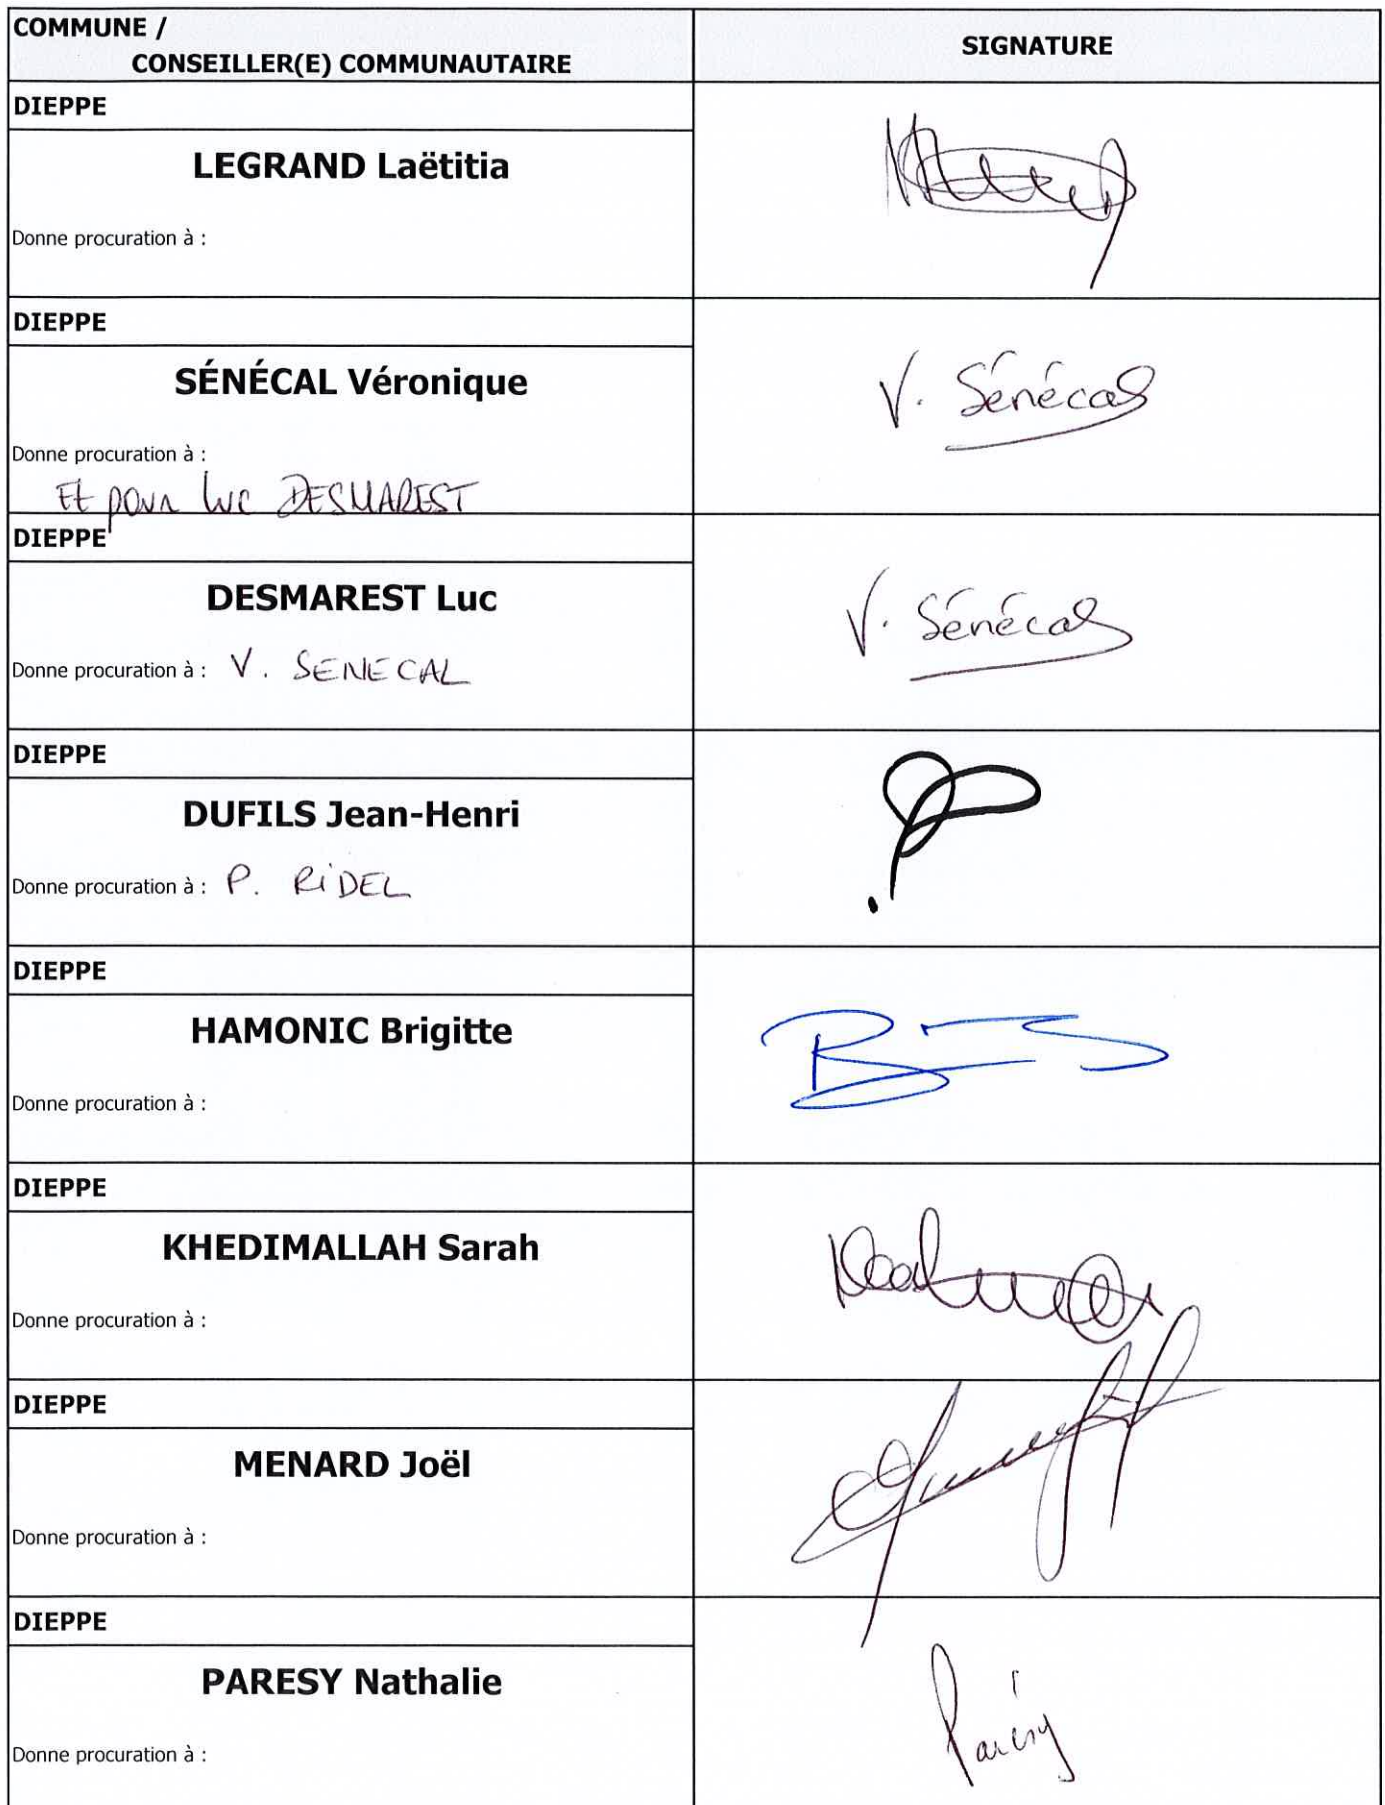 COMMUNE /
CONSEILLER(E) COMMUNAUTAIRE
SIGNATURE
DIEPPE
LEGRAND Laëtitia
Donne procuration à :
DIEPPE
SÉNÉCAL Véronique
V. Sénécal
Donne procuration à :
Et pour Luc DESMAREST
DIEPPE
DESMAREST Luc
V. Sénécal
Donne procuration à : V. SENECAL
DIEPPE
DUFILS Jean-Henri
Donne procuration à : P. RiDEL
DIEPPE
HAMONIC Brigitte
Donne procuration à :
DIEPPE
KHEDIMALLAH Sarah
Donne procuration à :
DIEPPE
MENARD Joël
Donne procuration à :
DIEPPE
PARESY Nathalie
Parésy
Donne procuration à :